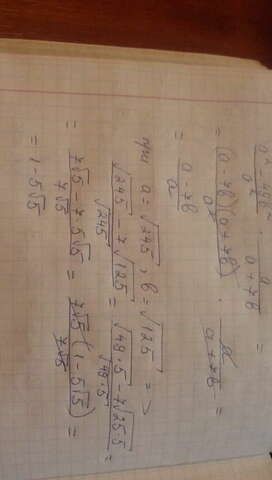 a²-49b²/a² · a/a+7b =
= (a-7b)(a+7b)/a² · a/a+7b =
= a-7b/a
при a=√245, b=√125 =>
√245-7√125/√245 = √49·5-7√25·5/√49·5 =
= 7√5-7·5√5/7√5 = 7√5(1-5√5)/7√5 =
= 1-5√5